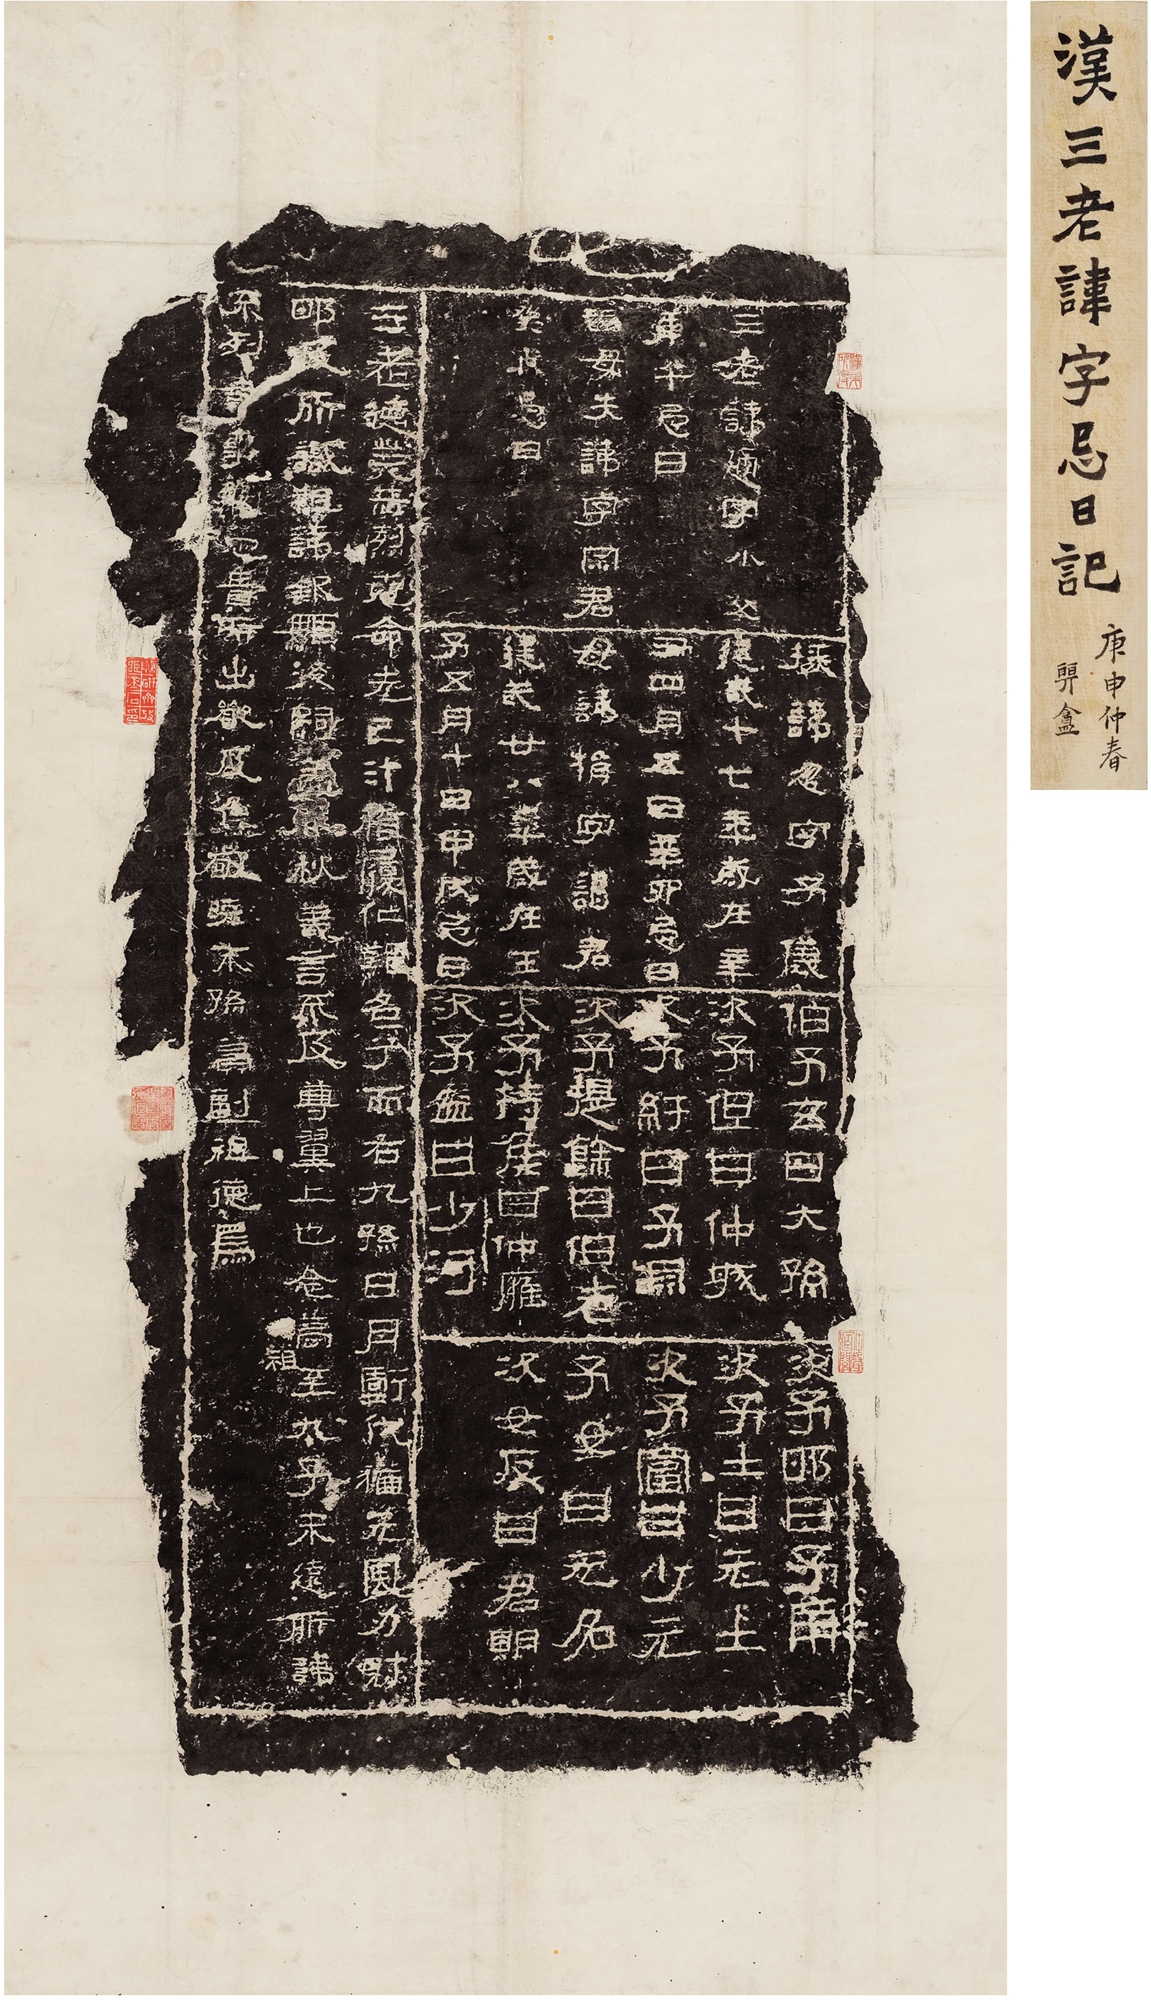 漢三老諱字忌日記
庚申仲春
三老諱通字小父
庚午忌日
祖母失諱字宗君
癸未忌日
掾諱忽字子儀
建武十七年歲在辛
丑四月五日辛卯忌日
母諱捐字謁君
建武廿八年歲在壬
子五月十日甲戌忌日
伯子玄曰大孫
次子但曰仲城
次子紆曰子淵
次子提餘曰伯老
次子持侯曰仲廱
次子盆曰少河
次子邯曰子南
次子士曰元士
次子富曰少元
子女曰无名
次女反曰君明
三老德業赫烈克命先己汁稽履仁難名兮而右九孫日月虧代猶元風力射
邯及所識祖諱欽顯後嗣蓋春秋義言不及尊翼上也念高祖至九子未遠所諱
不列言事觸忌貴所出嚴及焦敬曉末孫冀副祖德焉